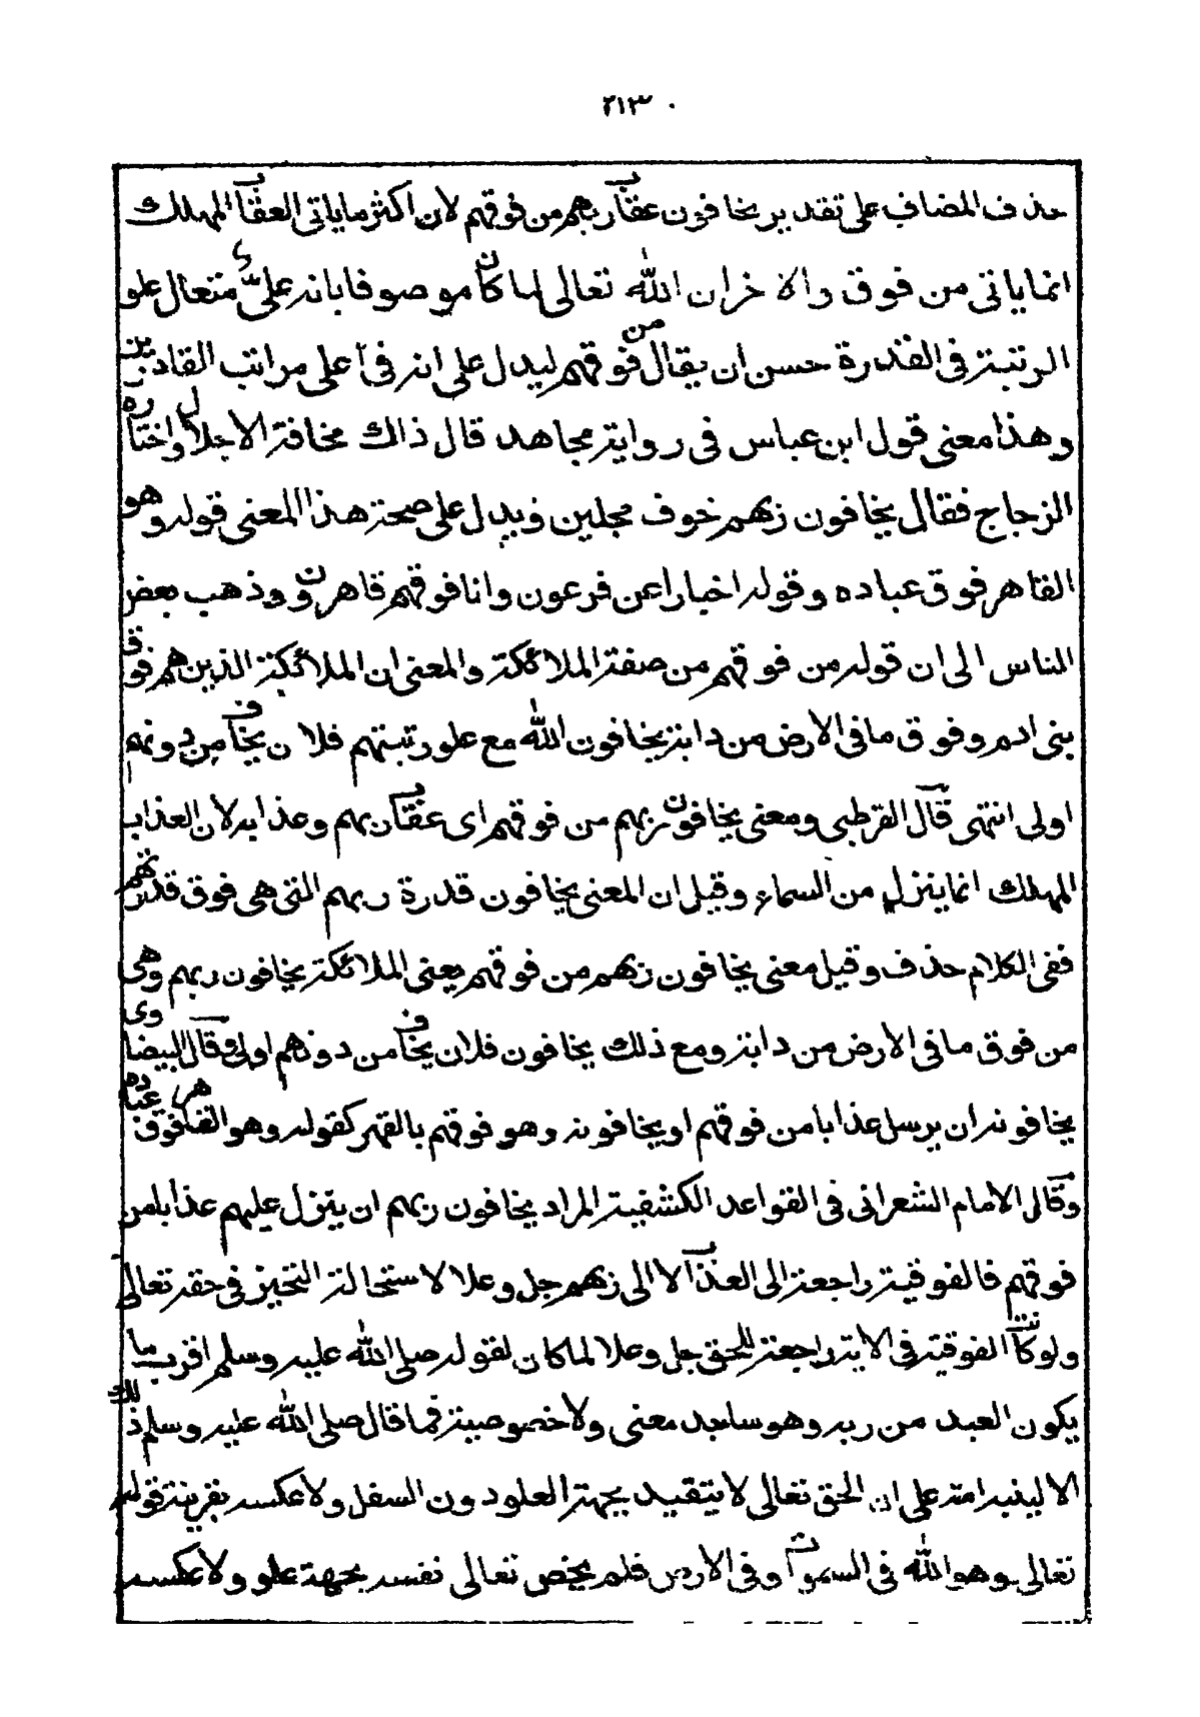 ٢١٣
حذف المضاف على تقدير يخافون عقاب ربهم من فوقهم لان اكثر ما ياتى العقاب المهلك
انما ياتى من فوق والاخر ان الله تعالى لما كان موصوفا بانه على متعال علو
الرتبة فى القدرة حسن ان يقال من فوقهم ليدل على انه فى اعلى مراتب القادرين
وهذا معنى قول ابن عباس فى رواية مجاهد قال ذاك مخافة الاجلال واختاره
الزجاج فقال يخافون ربهم خوف مجلين ويدل على صحة هذا المعنى قوله وهو
القاهر فوق عباده وقوله اخبارا عن فرعون وانا فوقهم قاهرون وذهب بعض
الناس الى ان قوله من فوقهم من صفة الملائكة والمعنى ان الملائكة الذين هم فوق
بنى ادم وفوق ما فى الارض من دابة يخافون الله مع علو رتبتهم فلان يخاف من دونهم
اولى انتهى قال القرطبى ومعنى يخافون ربهم من فوقهم اى عقاب ربهم وعذابه لان العذاب
المهلك انما ينزل من السماء وقيل ان المعنى يخافون قدرة ربهم التى هى فوق قدرتهم
ففى الكلام حذف وقيل معنى يخافون ربهم من فوقهم يعنى الملائكة يخافون ربهم وهى
من فوق ما فى الارض من دابة ومع ذلك يخافون فلان يخاف من دونهم اولى وقال البيضاوى
يخافونه ان يرسل عذابا من فوقهم او يخافونه وهو فوقهم بالقهر كقوله وهو القاهر فوق عباده
وقال الامام الشعرانى فى القواعد الكشفية المراد يخافون ربهم ان ينزل عليهم عذابا من
فوقهم فالفوقية راجعة الى العذاب لا الى ربهم جل وعلا لاستحالة التحيز فى حقه تعالى
ولو كانت الفوقية فى الاية راجعة للحق جل وعلا لما كان لقوله صلى الله عليه وسلم اقرب ما
يكون العبد من ربه وهو ساجد معنى ولا خصوصية فما قال صلى الله عليه وسلم ذلك
الا لينبه امته على ان الحق تعالى لا يتقيد بجهة العلو دون السفل ولا عكسه بقرينة قوله
تعالى وهو الله فى السموات وفى الارض فلم يخص تعالى نفسه بجهة علو ولا عكسه